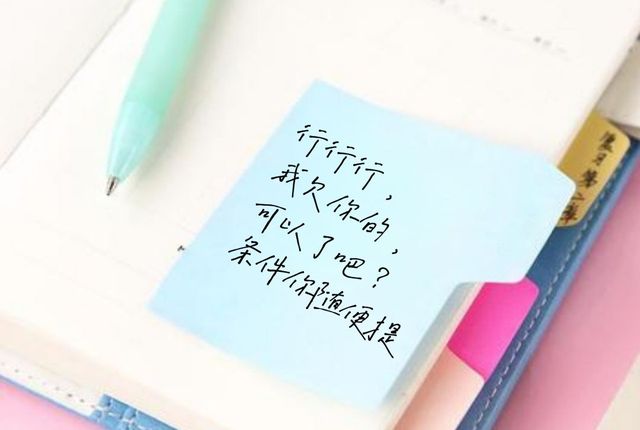 行行行，
我欠你的，
可以了吧？
条件你随便提